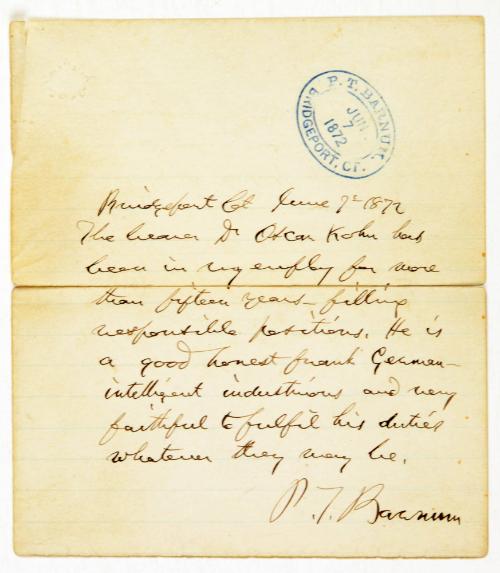 P. T. BARNUM.
JUN
7
1872
BRIDGEPORT, CT.
Bridgeport Ct June 7th 1872
The bearer Dr Oscar Kohn has
been in my employ for more
than fifteen years - filling
responsible positions. He is
a good honest frank German -
intelligent industrious and very
faithful to fulfil his duties
whatever they may be.
P. T. Barnum